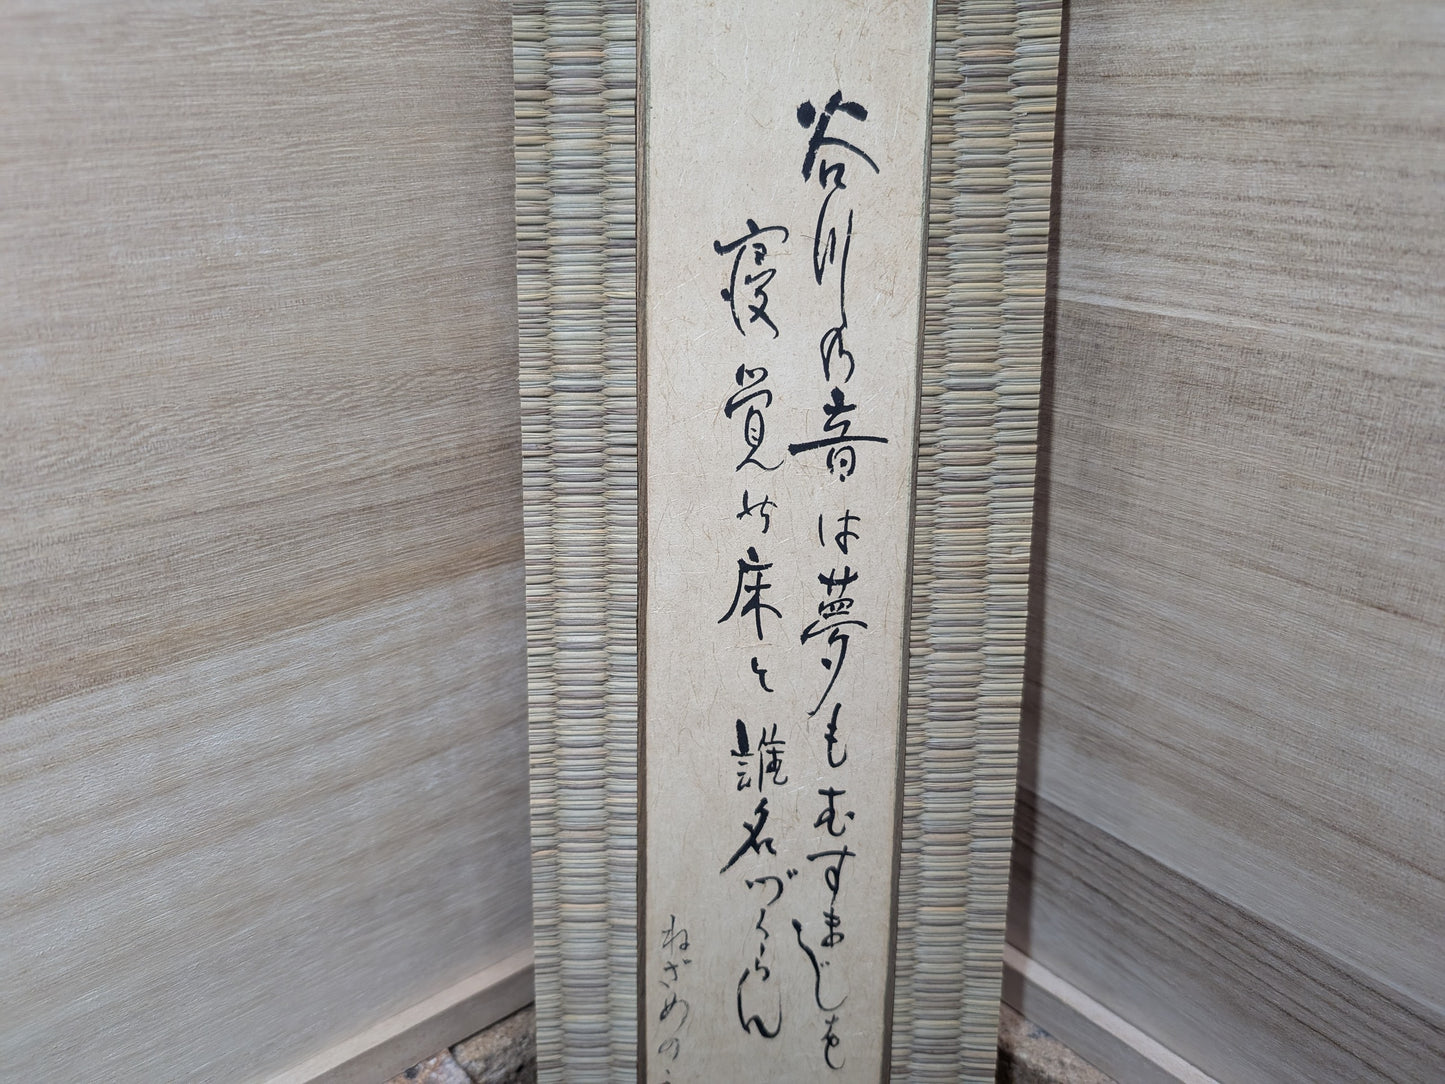 谷川の音は夢もむすまじを
寝覚の床と誰名づくらん
ねざめの